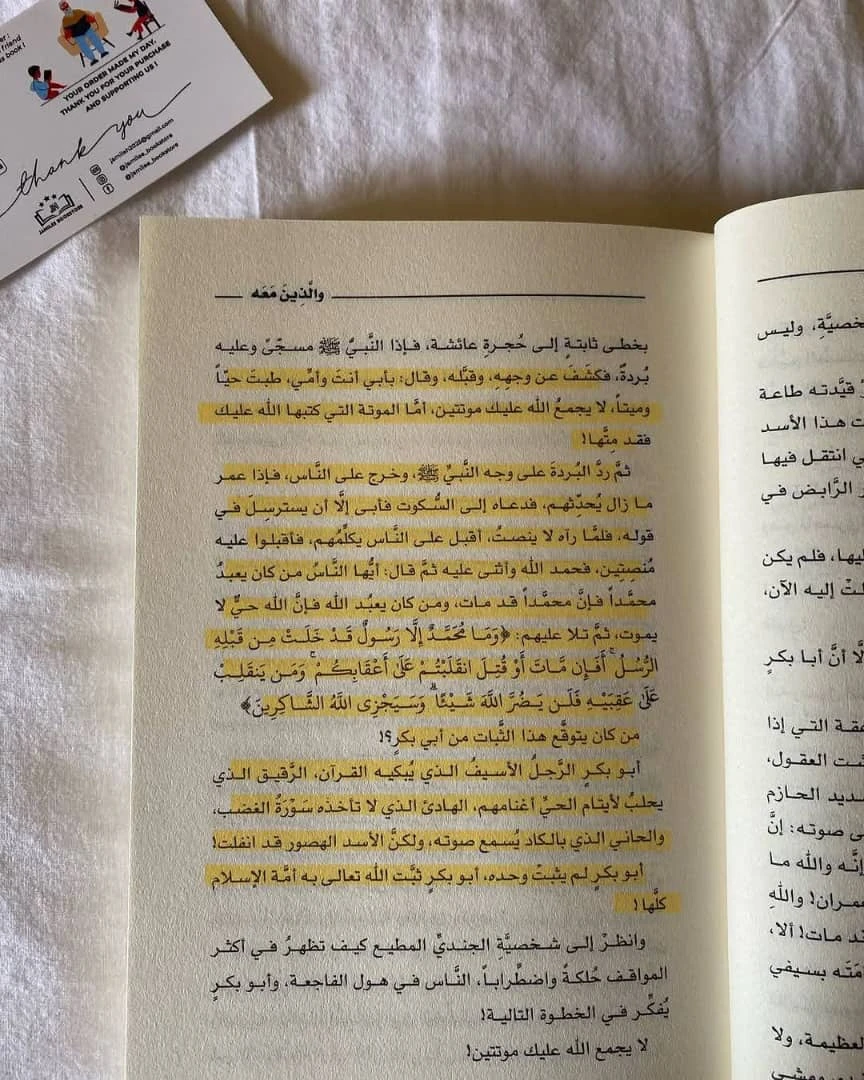 YOUR ORDER MADE MY DAY.
THANK YOU FOR YOUR PURCHASE
AND SUPPORTING US !
thank you
jamilah2025@gmail.com
@jamilee_bookstore
@jamilee_bookstore
JAMILEE BOOKSTORE
والَّذِينَ مَعَه
بخطى ثابتةٍ إلى حُجرةِ عائشة، فـإذا النَّبيُّ ﷺ مسجّىً وعليه
بُردةٌ، فكشَفَ عن وجهِهِ، وقبَّله، وقال: بأبي أنتَ وأمِّي، طبتَ حيّاً
وميتاً، لا يجمعُ الله عليك موتتين، أمَّا الموتة التي كتبها الله عليك
فقد مِتَّها!
ثمَّ ردَّ البُردةَ على وجه النَّبيِّ ﷺ، وخرج على النَّاس، فإذا عمر
ما زال يُحدِّثهم، فدعاه إلى السُّكوت فأبى إلَّا أن يسترسِلَ في
قوله، فلمَّا رآه لا ينصتُ، أقبل على النَّاس يكلِّمُهم، فأقبلوا عليه
مُنصِتِين، فحمد الله وأثنى عليه ثمَّ قال: أيُّها النَّاسُ من كان يعبدُ
محمَّداً فإنَّ محمَّداً قد مات، ومن كان يعبُد الله فإنَّ الله حيٌّ لا
يموت، ثمَّ تلا عليهم: ﴿وَمَا مُحَمَّدٌ إِلَّا رَسُولٌ قَدْ خَلَتْ مِن قَبْلِهِ
الرُّسُلُ ۚ أَفَإِن مَّاتَ أَوْ قُتِلَ انقَلَبْتُمْ عَلَىٰ أَعْقَابِكُمْ ۚ وَمَن يَنقَلِبْ
عَلَىٰ عَقِبَيْهِ فَلَن يَضُرَّ اللَّهَ شَيْئًا ۗ وَسَيَجْزِي اللَّهُ الشَّاكِرِينَ﴾
من كان يتوقَّع هذا الثَّبات من أبي بكرٍ؟!
أبو بكرٍ الرَّجلُ الأسيفُ الذي يُبكيه القرآن، الرَّقيق الذي
يحلبُ لأيتام الحيِّ أغنامهم، الهادئ الذي لا تأخذه سَوْرَةُ الغضب،
والحاني الذي بالكاد يُسمع صوته، ولكنَّ الأسد الهصور قد انفلت!
أبو بكرٍ لم يثبتْ وحده، أبو بكرٍ ثبَّت الله تعالى به أمَّة الإسلام
كلَّها!
وانظرْ إلى شخصيَّةِ الجنديِّ المطيع كيف تظهرُ في أكثر
المواقف حُلكةً واضطراباً، النَّاس في هول الفاجعة، وأبو بكرٍ
يُفكِّر في الخطوة التالية!
لا يجمع الله عليك موتتين!
وليس
قيَّدته طاعة
هذا الأسد
انتقل فيها
الرَّابض في
فلم يكن
إليه الآن،
أنَّ أبا بكرٍ
التي إذا
العقول،
الحازم
صوته: إنَّ
إنَّه والله ما
واللهِ
مات! ألا،
بسيفي
العظيمة، ولا